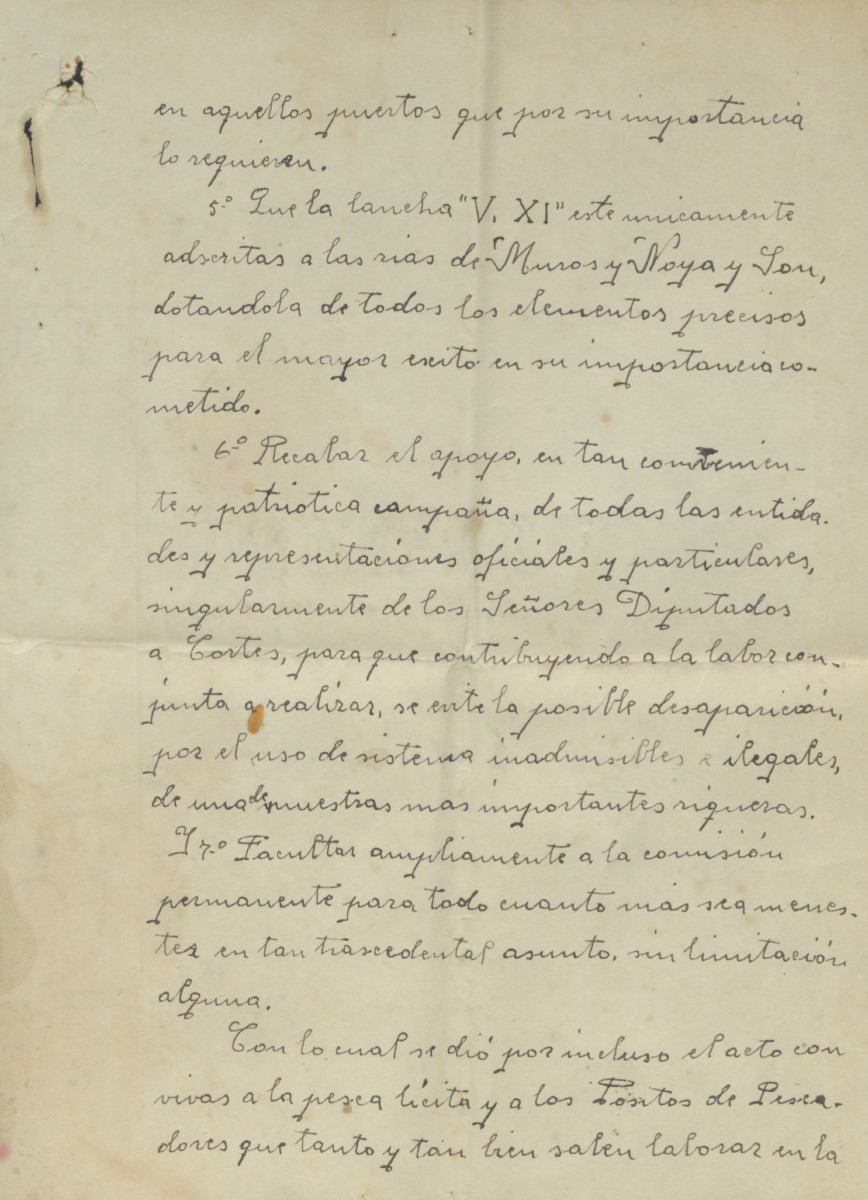 en aquellos puertos que por su importancia
lo requieren.
5.º Que la lancha "V. XI" este unicamente
adscritas a las rias de Muros y Noya y Son,
dotandola de todos los elementos precisos
para el mayor exito en su importancia co-
metido.
6º Recabar el apoyo, en tan convenien-
te y patriotica campaña, de todas las entida-
des y representaciones oficiales y particulares,
singularmente de los Señores Diputados
a Cortes, para que contribuyendo a la labor con-
junta a realizar, se evite la posible desaparición,
por el uso de sistema inadmisibles e ilegales,
de una de nuestras mas importantes riquezas.
Y 7.º Facultar ampliamente a la comisión
permanente para todo cuanto más sea menes-
ter en tan trascedental asunto, sin limitación
alguna.
Con lo cual se dió por incluso el acto con
vivas a la pesca lícita y a los Pósitos de Pesca-
dores que tanto y tan bien saben laborar en la